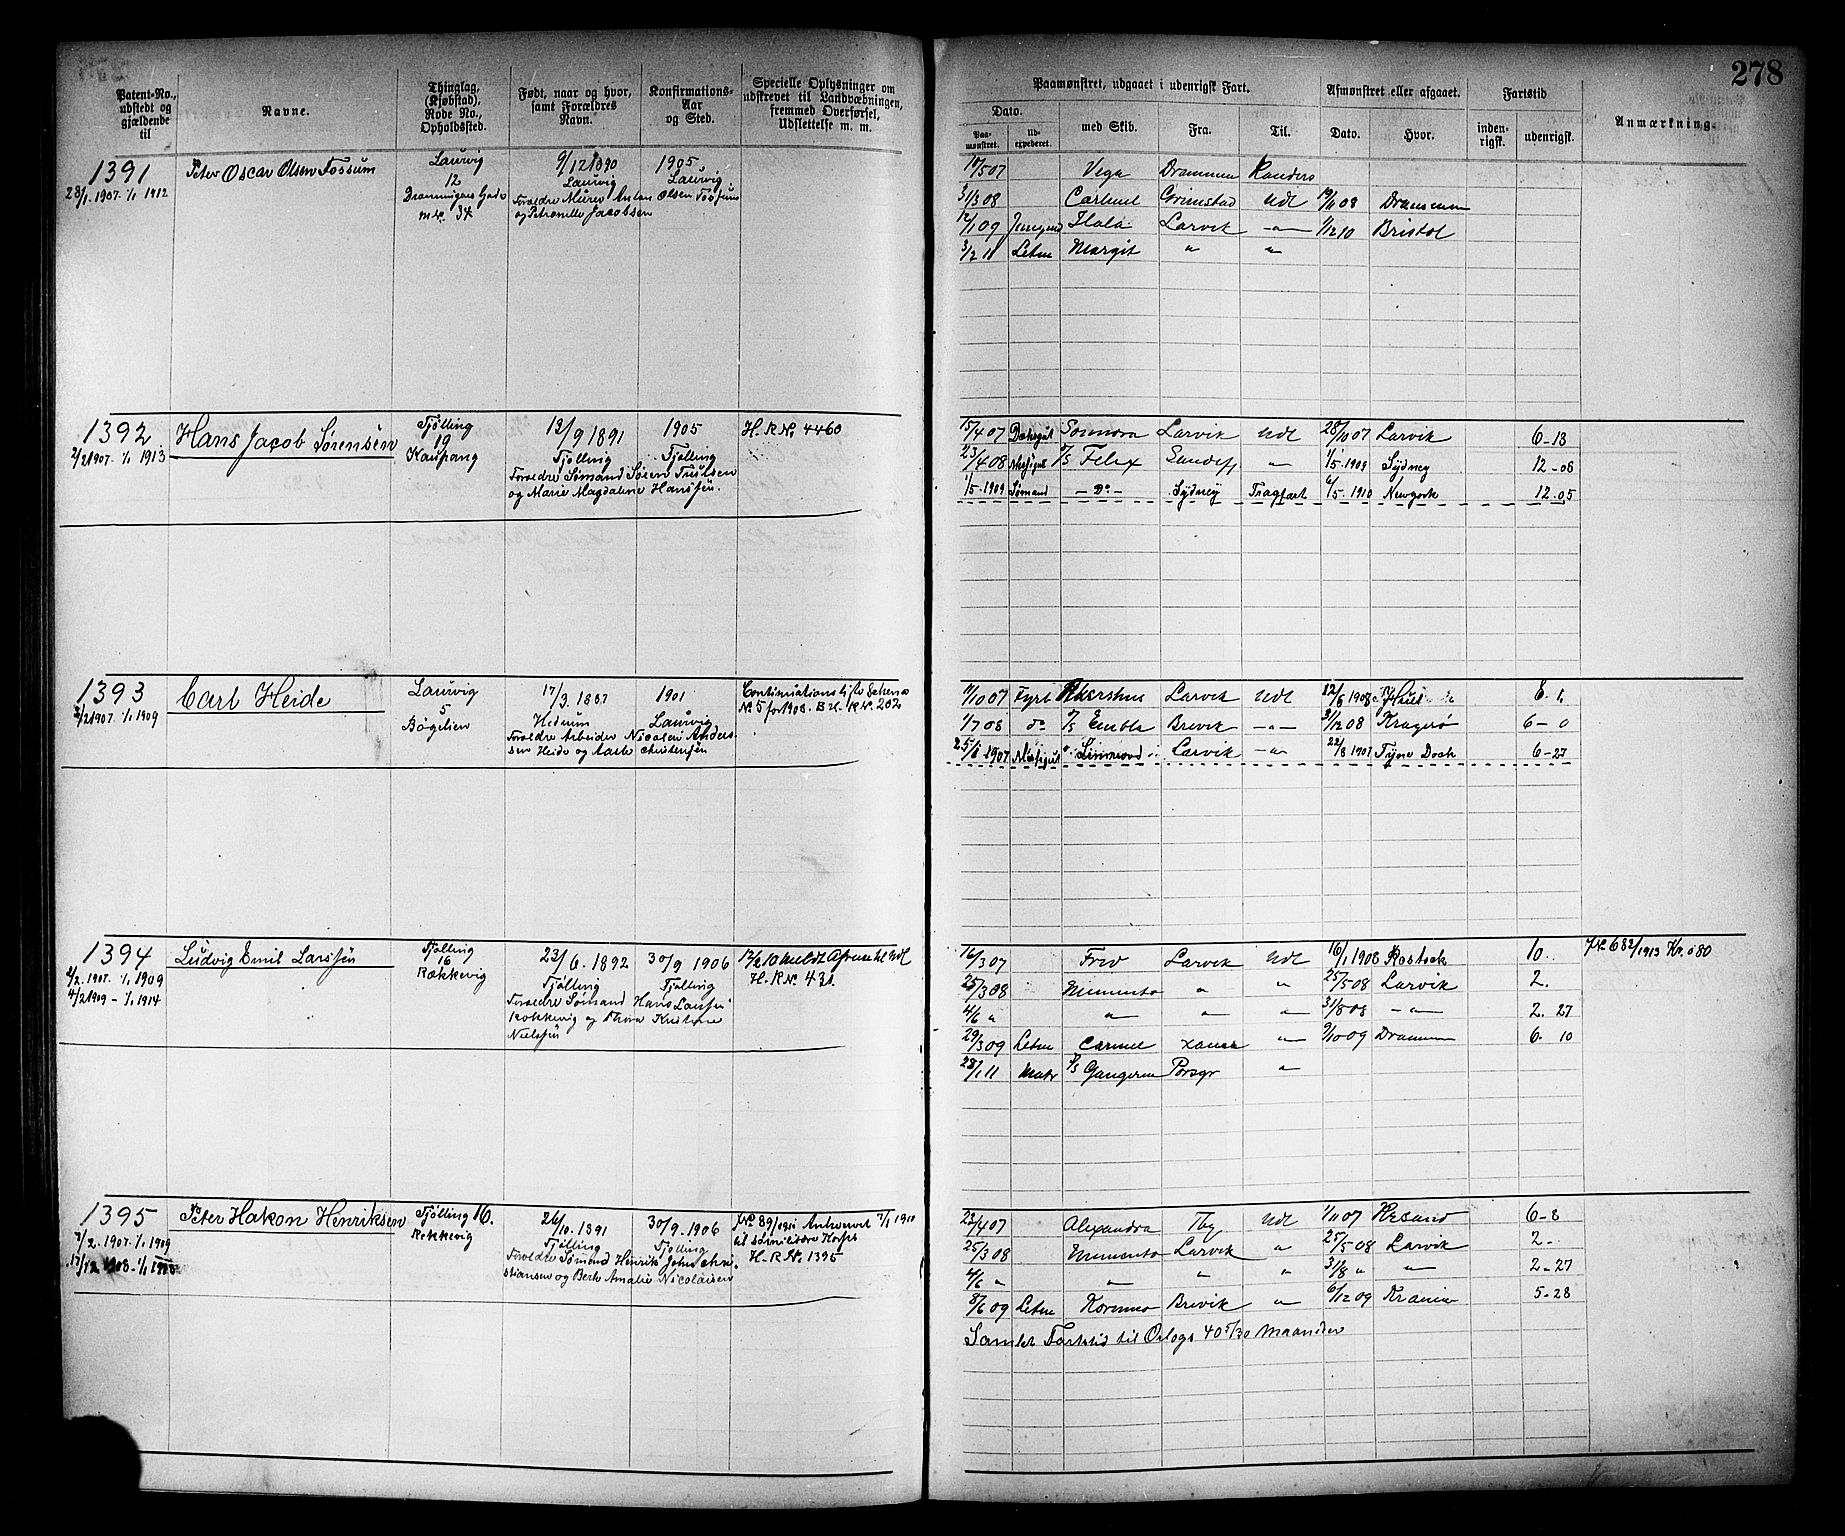 278
Patent-No., udstedt og gjældende til
Navne.
Thinglag, (Kjøbstad), Rode No., Opholdssted.
Født, naar og hvor, samt Forældres Navn.
Konfirmations-Aar og Sted.
Specielle Oplysninger om udskrevet til Landvæbningen, fremmed Overførsel, Udslettelse m. m.
Paamønstret, udgaaet i udenrigsk Fart.
Afmønstret eller afgaaet.
Fartstid
Anmærkning.
Dato.
Paa-mønstret.
Ud-expederet.
med Skib.
Fra.
Til.
Dato.
Hvor.
inden-rigsk.
udenrigsk.
1391
28/1.1907. 1/1 1912
Peter Oscar Olsen Fossum
Laurvig
12
Dronningens Gade
34
9/12 1890
Laurvig
Forældre Murer Anton Olsen Fossum
og Petronille Jacobsen
1905
Laurvig
10/5 07 Vega Drammen Randers
31/3 08 Carmel Grimstad Udl 19/11 08 Drammen
12/1 09 Jungmd Ilala Larvik -"- 1/12 10 Bristol
3/2 11 Letm Margit " "
1392
2/2 1907. 1/1 1913
Hans Jacob Sørensen
Tjølling
19
Kaupang
12/9 1891
Tjølling
Forældre Sømand Søren Trulsen
og Marie Magdalene Hanssen.
1905
Tjølling
H.R.No. 4460
15/4 07 Dæksgut Sonnora Larvik Udl 28/10 07 Larvik 6-13
23/4 08 D/S Felix Sandefj " 1/5.1909 Sydney 12-08
1/5.1909 Sømand -Do- Sydney Tragfart 6/5.1910 Newyork 12.05
1393
2/2 1907. 1/1 1909
Carl Heide
Laurvig
5
Bøgelien
17/3.1887
Hedrum
Forældre Arbeider Nicolai Anders-
sen Heide og Karle Christensen
1901
Laurvig
Continuations liste
No 5 for 1908. H.R.No. 202
11/10 07 Fyrb Akershus Larvik Udl
1/7 08 do D/S Embla Brevik -"- 31/12 08 Kragerø 6-0
25/1 1907 Larvik -"- 22/8 1907 Tyne Dock 6-27
1394
2/2.1907. 1/1 1909
4/2 1909 - 1/1 1914
Ludvig Emil Larssen
Tjølling
16
Rækkevig
23/6.1892
Tjølling
Forældre Sømand Hans Larsen
Rækkevig og Thora Kristine
Nielsen
30/9 1906
Tjølling
H.R.No. 431.
16/3 07 Frev Larvik Udl 16/1 1908 Rostock 10.
25/3 08 Memento " " 25/5 08 Larvik 2.
4/6 " " " " 31/8 08 -"- 2.27
29/3 09 Letm Carmel " 9/10 09 Drammen 6.10
28/1 11 Matr D/S Gangeren Porsgr "
J.No 682/1913
1395
2/2.1907. 1/1 1909
17/12 1908
Peter Hakon Henriksen
Tjølling 16.
Rekkevig
26/10.1891
Tjølling
Forældre Sømand Henrik John Chri-
stiansen og Berte Amalie Nicolaisen
30/9.1906
Tjølling
J.No 89/1911
til sømilitære Korps
H.R.No. 1395
23/4 07 Alexandra Tbg Udl 1/11 07 6-8
25/3 08 Memento Larvik " 25/5 08 Larvik 2-
4/6 " " " " 31/8 " " 2-27
8/6 09 Letm Brevik " 6/12 09 5-28
Samlet Fartstid til Orlogs 40 5/30 Maaneder